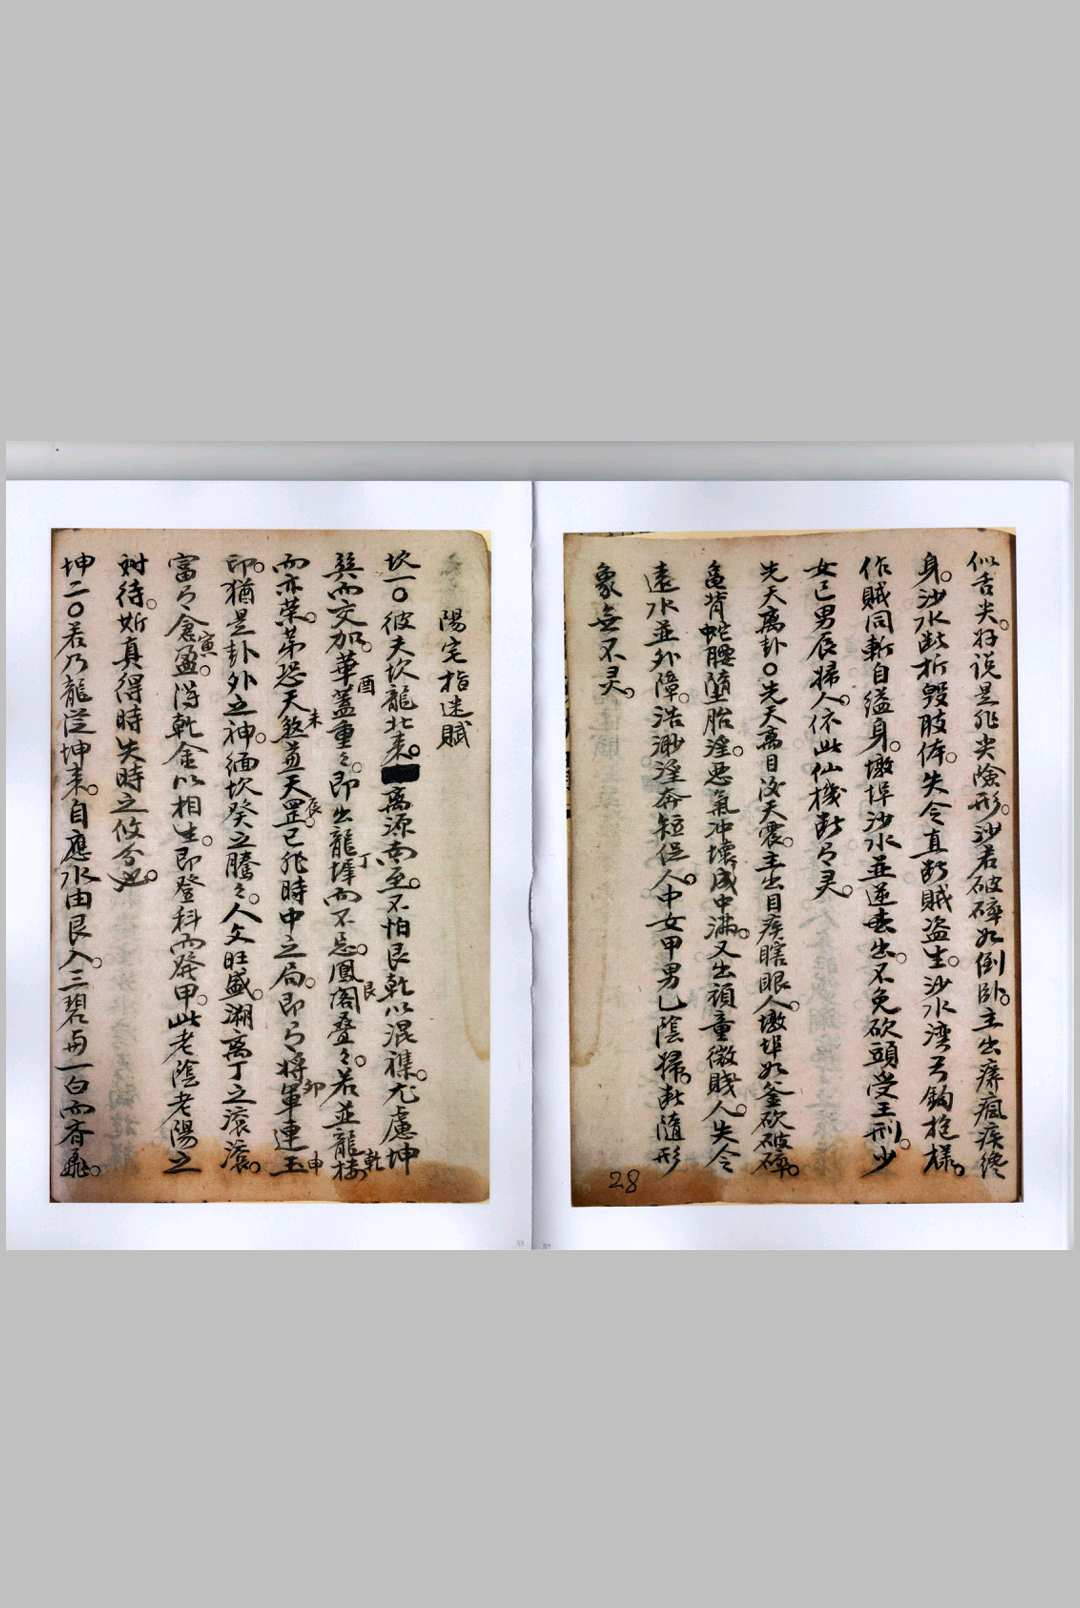 似舌尖。好說是非尖險形。沙若破碎如倒卧。主出癆瘋疾纏
身。沙水斷折毀肢体。失令直斷賊盗生。沙水湾弓鈎抱樣。
作賊同斬自縊身。墩埠沙水並逆去出。不免砍頭受王刑。少
女巳男辰婦人。依此仙機断有灵。
先天离卦〇先天离目後天震。主出目疾瞎眼人。墩埠如釜砍破碎。
龟背蛇腰墮胎淫。惡氣冲壞成中滿。又出頑童微賤人。失令
遠水並外障。浩渺淫奔短促人。中女甲男乙陰婦。断隨形
象無不灵。
28
陽宅指迷賦
坎一〇彼夫坎龍北来。离源南至。不怕艮乾以混襍。尤慮坤
巽而交加。華酉蓋重々。即出龍丁墀而不忌。鳳艮閣叠々。若並龍樓乾
而亦荣。苐恐天煞未並天罡辰。已非時中之局。即有將卯軍連玉申
印。猶是卦外之神。緬坎癸之騰々。人文旺盛。溯离丁之滚滚。
富有倉寅盈。得乾金以相生。即登科而發甲。此老陰老陽之
對待。斯真得時失時之攸分也。
坤二〇若乃龍從坤来。自應水由艮入。三碧与一白而齐飛。